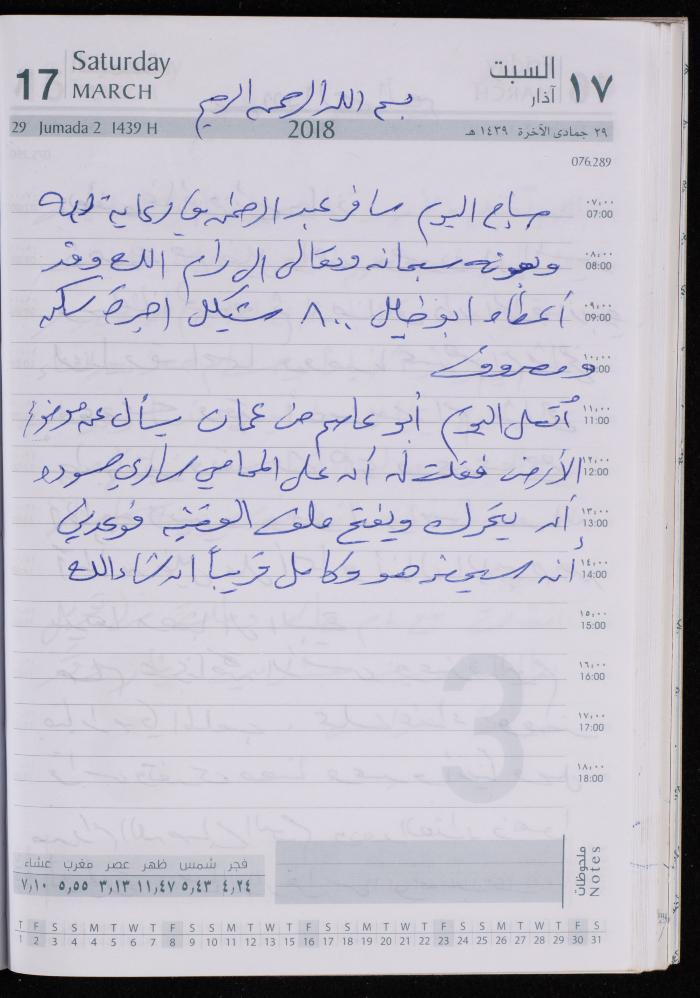 17 Saturday MARCH السبت آذار ١٧
بسم الله الرحمن الرحيم
29 Jumada 2 1439 H 2018 ٢٩ جمادى الآخرة ١٤٣٩ هـ
076.289
صباح اليوم سافر عبد الرحمن برعاية الله
٠٧:٠٠ 07:00
وبعونه سبحانه وتعالى الى رام الله وقد
٠٨:٠٠ 08:00
أعطاه ابو خليل ٨٠٠ شيكل اجرة سكن
٠٩:٠٠ 09:00
ومصروف
١٠:٠٠ 10:00
اتصل اليوم أبو عاصم من عمان يسأل عن موضوع
١١:٠٠ 11:00
الأرض فقلت له أن على المحامي
١٢:٠٠ 12:00
أن يتحرك ويفتح ملف القضية فوعدني
١٣:٠٠ 13:00
أنه سيحضر هو وكامل قريباً ان شاء الله
١٤:٠٠ 14:00
١٥:٠٠ 15:00
١٦:٠٠ 16:00
١٧:٠٠ 17:00
١٨:٠٠ 18:00
3
ملحوظات Notes
فجر شمس ظهر عصر مغرب عشاء
٤,٢٤ ٥,٤٣ ١١,٤٧ ٣,١٣ ٥,٥٥ ٧,١٠
T F S S M T W T F S S M T W T F S S M T W T F S S M T W T F S
1 2 3 4 5 6 7 8 9 10 11 12 13 14 15 16 17 18 19 20 21 22 23 24 25 26 27 28 29 30 31